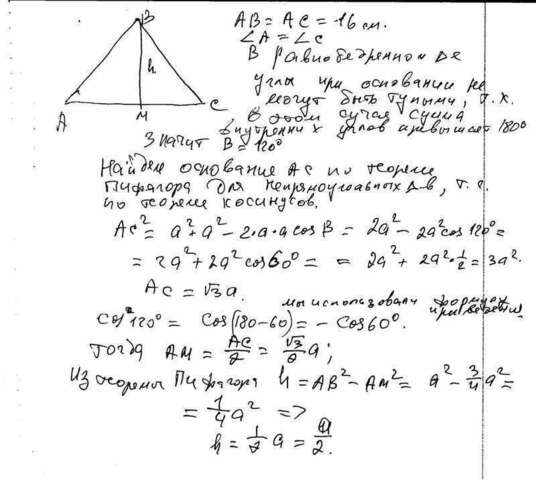 B
h
A
M
C
AB = AC = 16 см.
∠A = ∠C
В равнобедренном Δе
углы при основании не
могут быть тупыми, т.к.
в этом случая сумма
внутренних углов превышает 180°
Значит B = 120°
Найдем основание AC по теореме
Пифагора для непрямоугольных Δ-в, т.е.
по теореме косинусов.
AC² = a² + a² - 2·a·a cos B = 2a² - 2a² cos 120° =
= 2a² + 2a² cos 60° = = 2a² + 2a²·1/2 = 3a².
AC = √3a.
мы использовали формулу
приведения
cos 120° = cos(180-60) = - cos 60°.
тогда AM = AC/2 = √3/2 a;
Из теоремы Пифагора h = AB² - AM² = a² - 3/4 a² =
= 1/4 a² =>
h = 1/2 a = a/2.